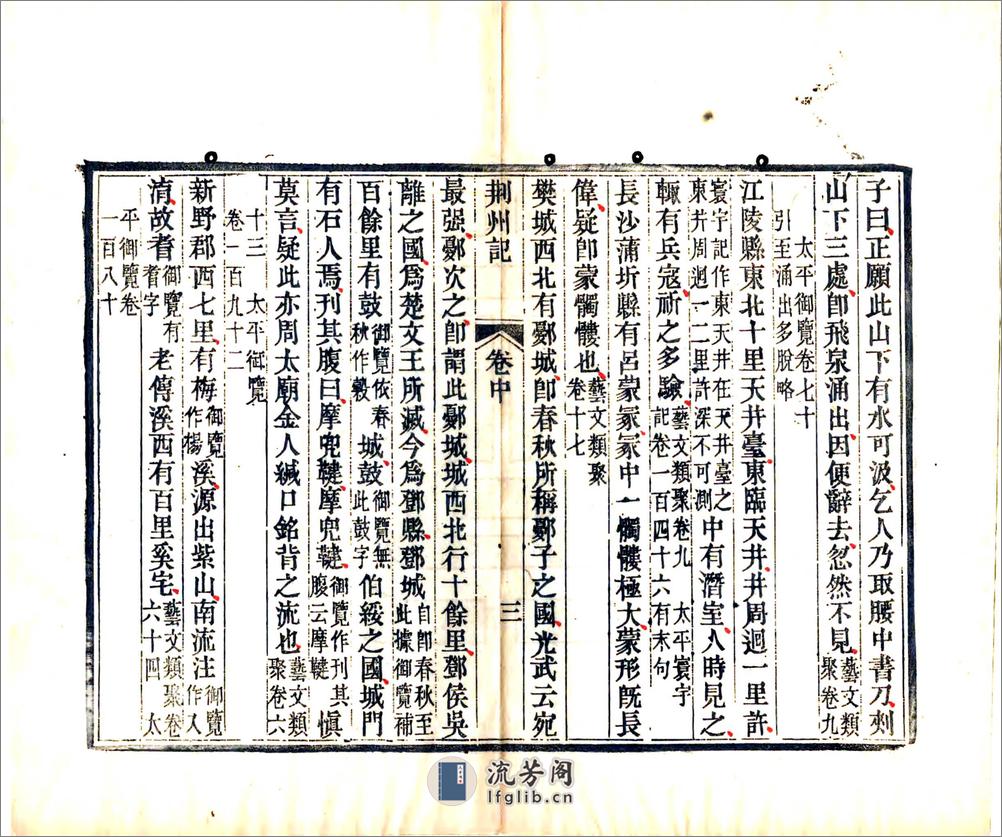 子曰正願此山下有水可汲乞人乃取腰中書刀刺
山下三處卽飛泉涌出因便辭去忽然不見藝文類聚卷九
太平御覽卷七十
引至涌出多脫略
江陵縣東北十里天井臺東臨天井井周迴一里許
寰宇記作東天井在天井臺之東井周迴一二里許深不可測中有潛室人時見之
輒有兵寇祈之多驗藝文類聚卷九 太平寰宇記卷一百四十六有末句
長沙蒲圻縣有呂蒙冢冢中一髑髏極大蒙形旣長
偉疑卽蒙髑髏也藝文類聚卷十七
樊城西北有鄾城卽春秋所稱鄾子之國光武云宛
荆州記 卷中 三
最强鄾次之卽謂此鄾城城西北行十餘里鄧侯吳
離之國爲楚文王所滅今爲鄧縣鄧城自卽春秋至此據御覽補
百餘里有鼓御覽依春秋作穀城鼓御覽無此鼓字伯綏之國城門
有石人焉刊其腹曰摩兜鞬摩兜鞬御覽作刊其腹云摩鞬愼
莫言疑此亦周太廟金人緘口銘背之流也藝文類聚卷六
十三 太平御覽
卷一百九十二
新野郡西七里有梅御覽作楊溪源出紫山南流注御覽作入
淯故耆御覽有耆字老傳溪西有百里奚宅藝文類聚卷六十四 太
平御覽卷
一百八十
流芳阁
lfglib.cn